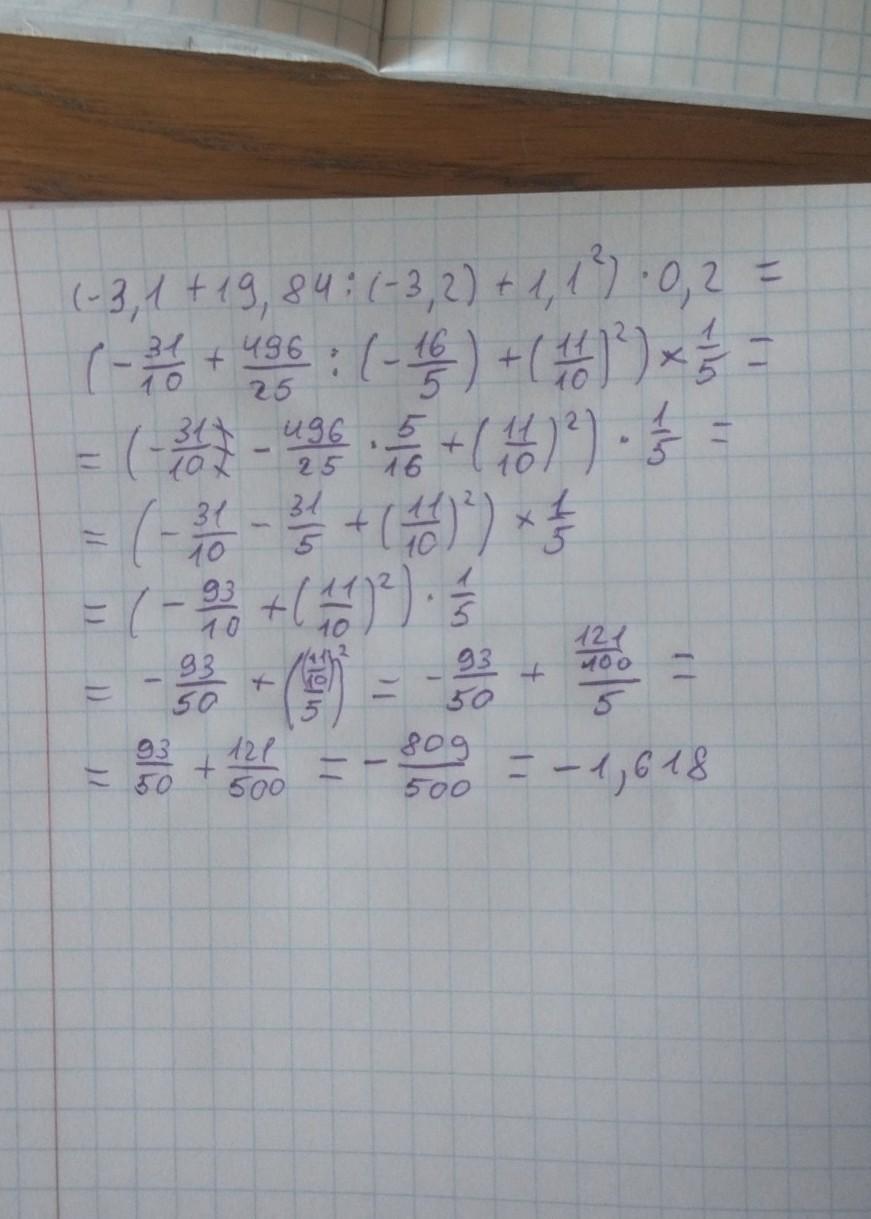 (-3,1 + 19,84 : (-3,2) + 1,1²) · 0,2 =
(-31/10 + 496/25 : (-16/5) + (11/10)²) × 1/5 =
= (-31/10) - 496/25 · 5/16 + (11/10)²) · 1/5 =
= (-31/10 - 31/5 + (11/10)²) × 1/5
= (-93/10 + (11/10)²) · 1/5
= -93/50 + ((11/10)/5)² = -93/50 + (121/100)/5 =
= 93/50 + 121/500 = -809/500 = -1,618